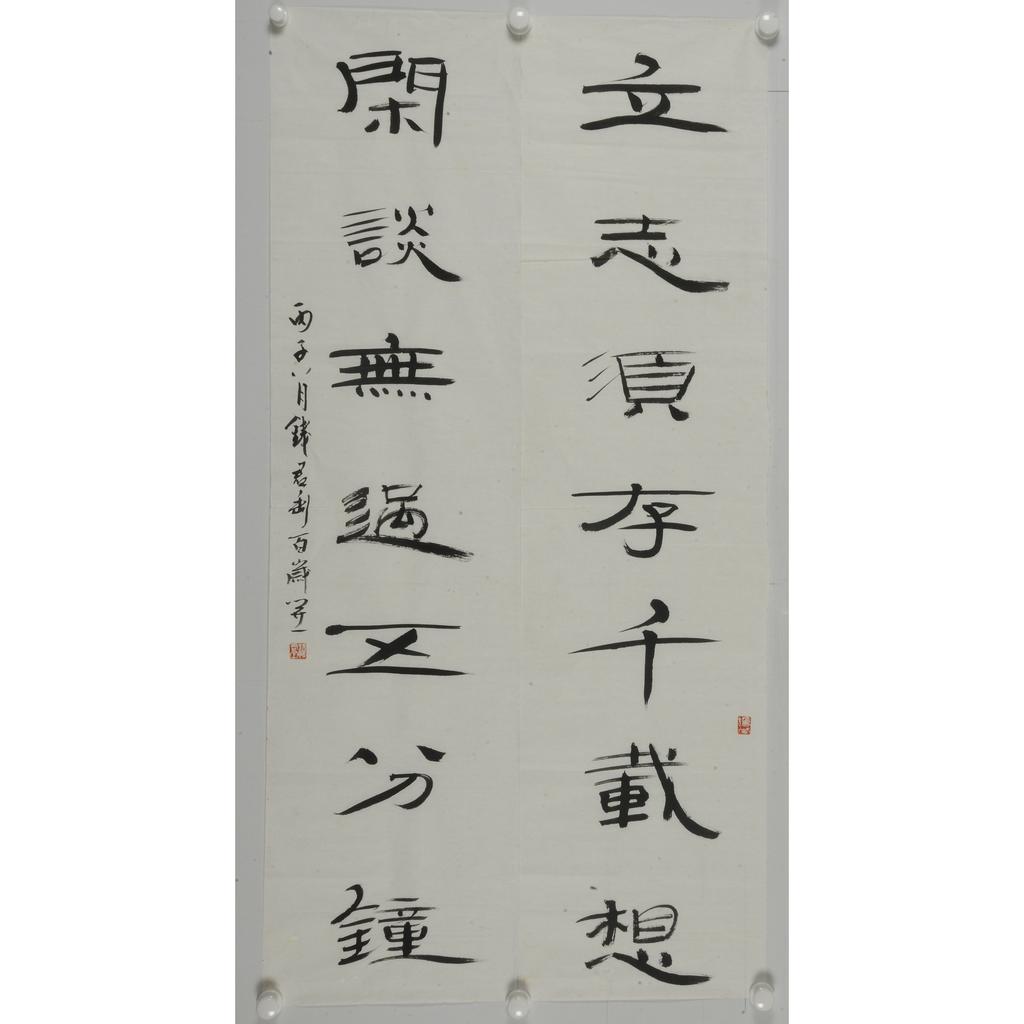 立志須存千載想
閑談無過五分鐘
丙子八月錢君匋百歲開一